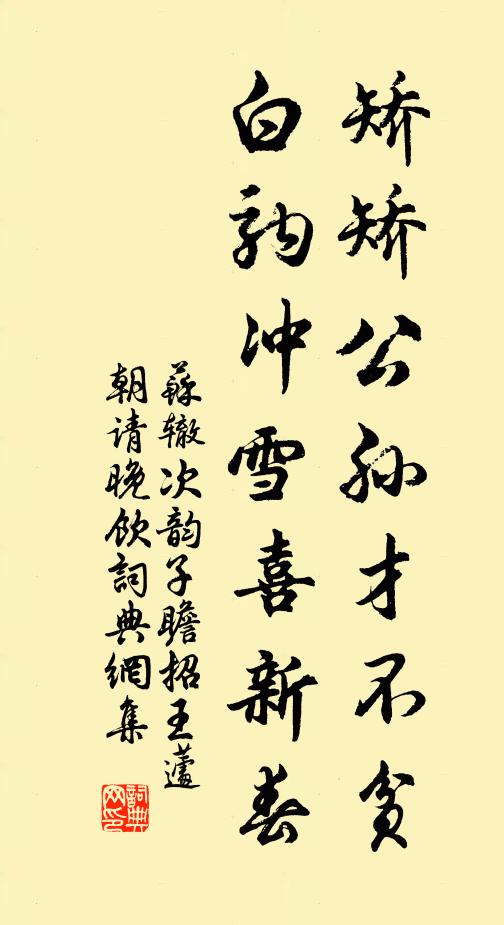 矫矫公孙才不贫
白驹冲雪喜新春
蘇辙次韵子瞻招王蘧
朝请晚饮詞典網集
詞典
网印